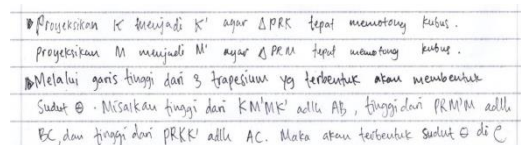 Proyeksikan K menjadi K' agar △PRK tepat memotong kubus.
proyeksikan M menjadi M' agar △PRM tepat memotong kubus.
Melalui garis tinggi dari 3 trapesium yg terbentuk akan membentuk
Sudut θ. Misalkan tinggi dari KM'MK' adlh AB, tinggi dari PRM'M adlh
BC, dan tinggi dari PRKK' adlh AC. Maka akan terbentuk sudut θ di C